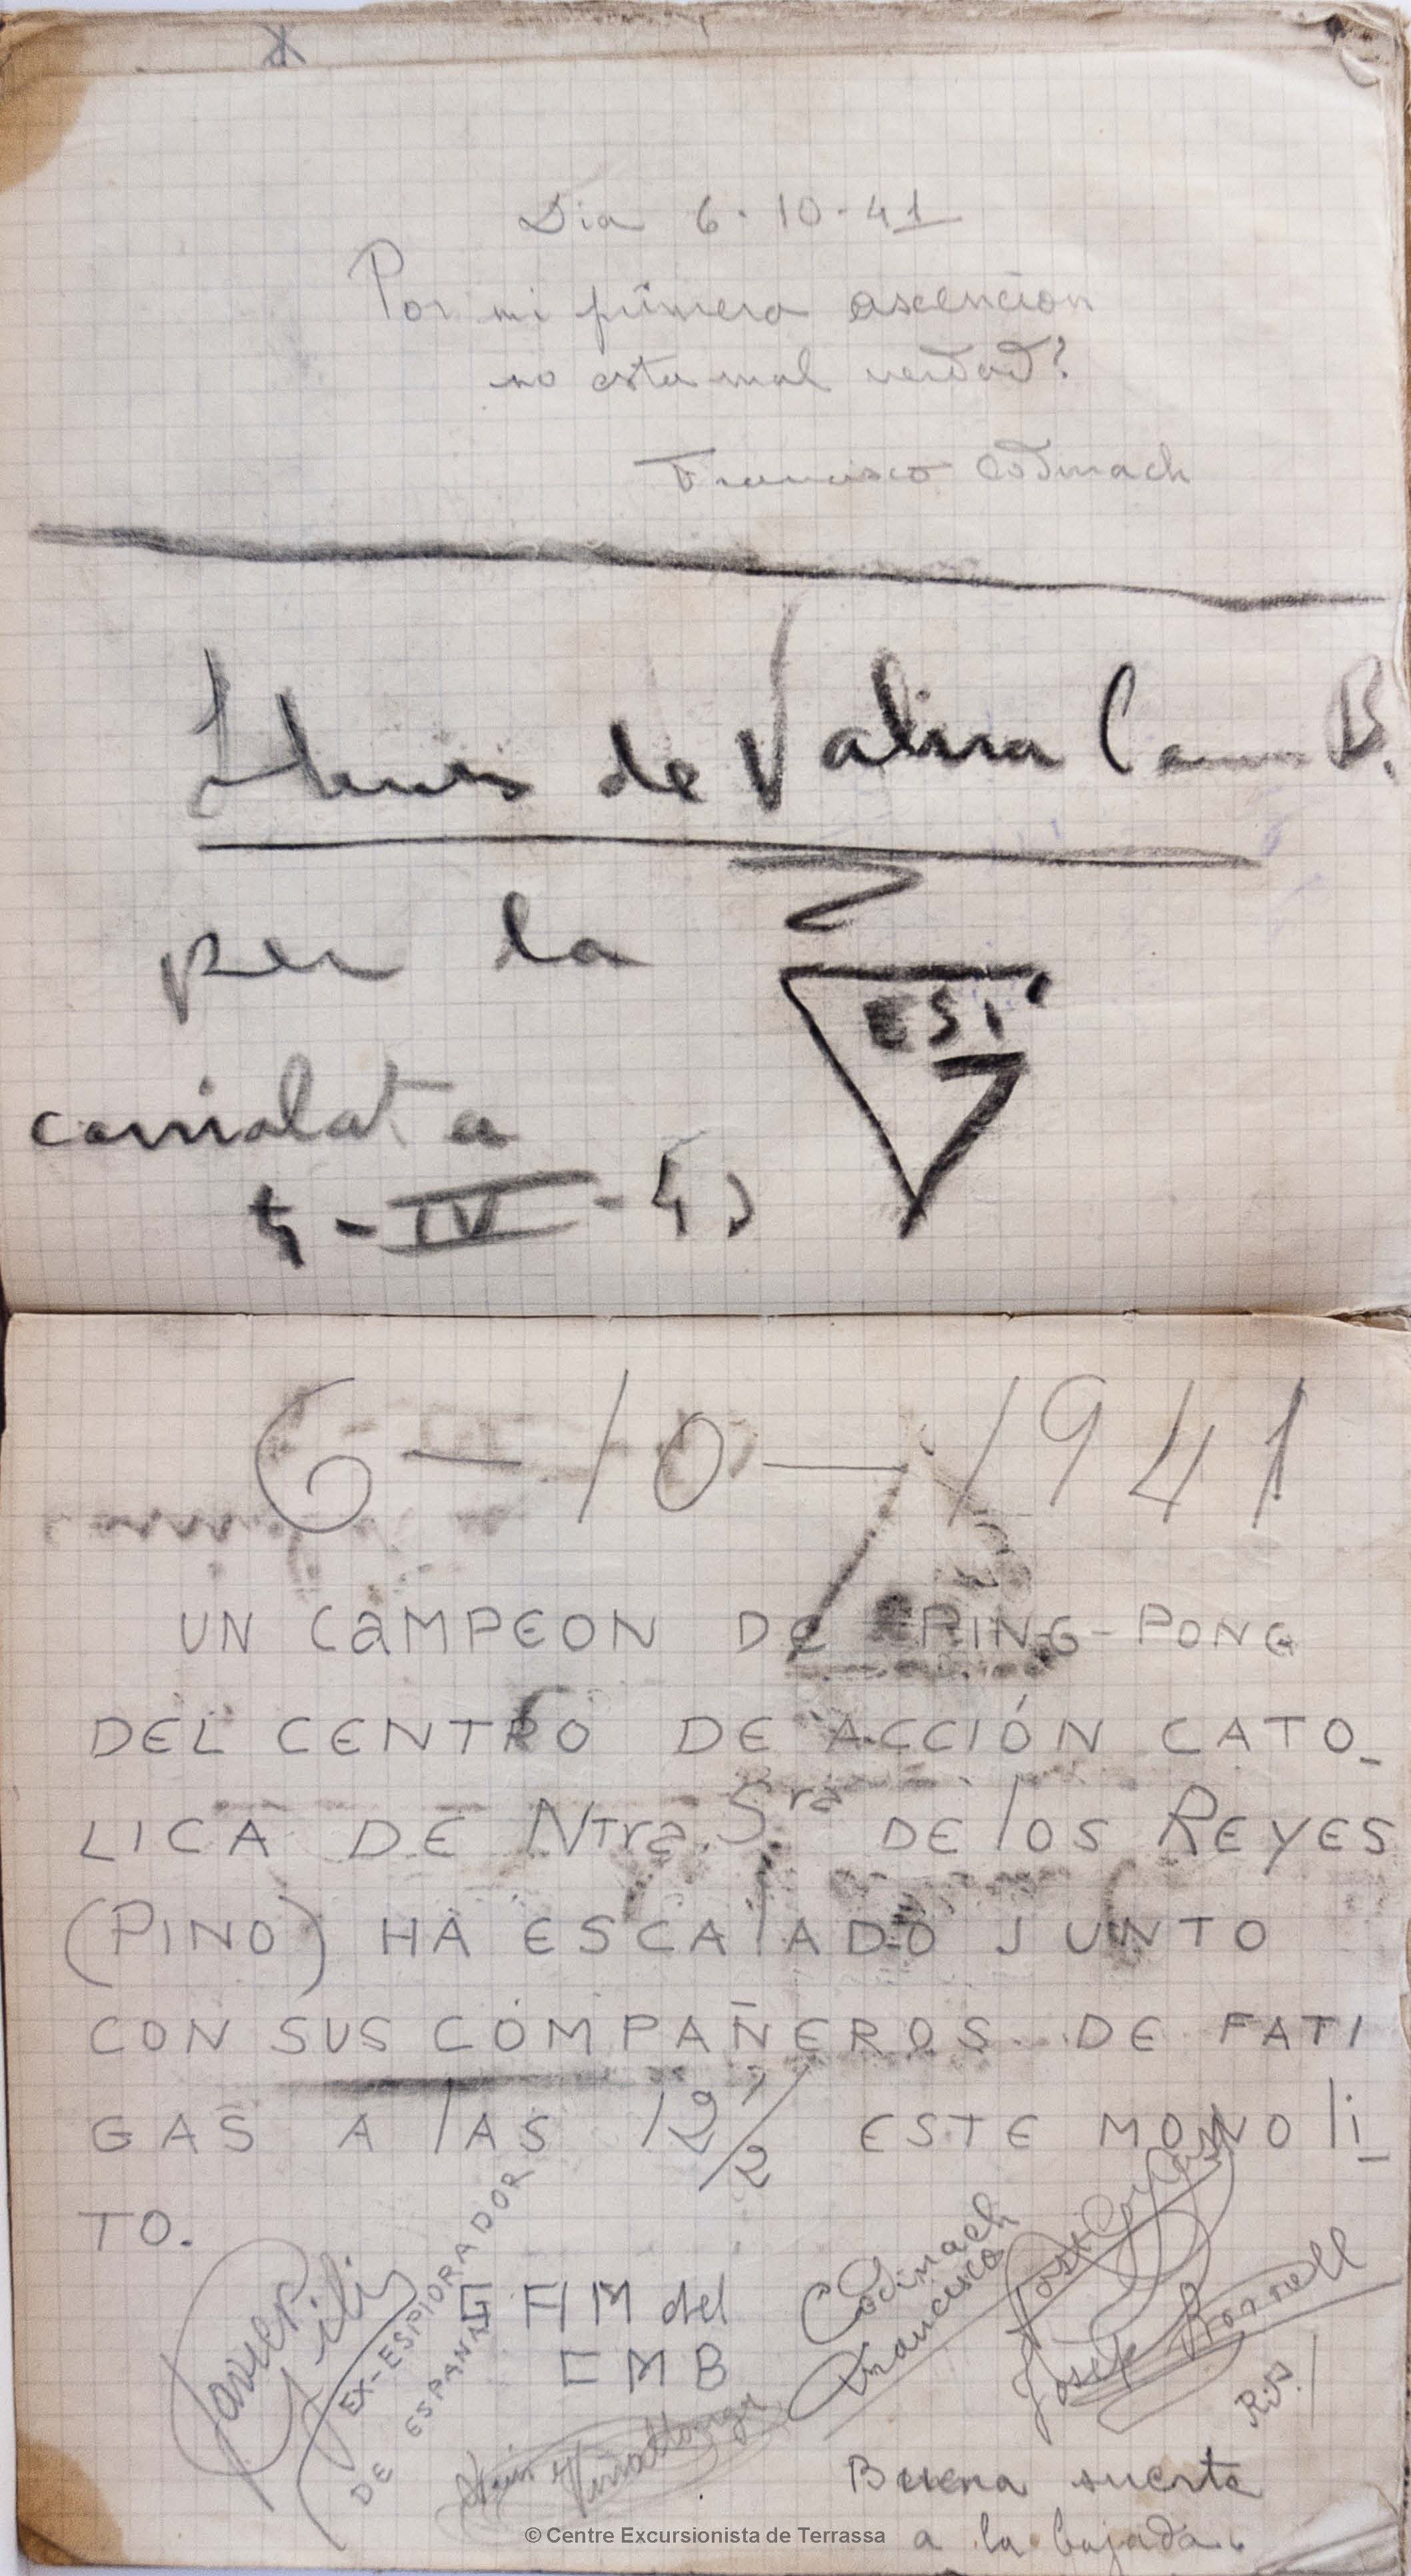 Dia 6·10·41
Por mi primera ascencion
no esta mal verdad?
Francisco Codinach
de B.
per la
EST
a
4-IV-4
6-10-1941
UN CAMPEON DE PING-PONG
DEL CENTRO DE ACCIÓN CATO-
LICA DE Ntra. Sra DE los REYES
(PINO) HA ESCAlADO JUNTO
CON SUS COMPAÑEROS DE FATI
GAS A lAS 12 1/2 ESTE MONOlI-
TO.
Javier
Gili
EX-ESPlORADOR
DE ESPAÑA
G H M del
C M B
Codinach
Francisco
José
Josep Borrell
Buena suerte
a la bajada.
© Centre Excursionista de Terrassa